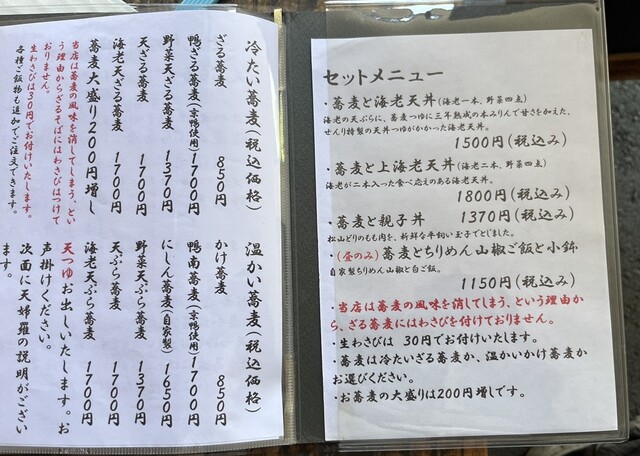 冷たい蕎麦(税込価格)
ざる蕎麦 850円
鴨ざる蕎麦(京鴨使用)1700円
野菜天ざる蕎麦 1370円
天ざる蕎麦 1700円
海老天ざる蕎麦 1700円
蕎麦大盛り200円増し
当店は蕎麦の風味を消してしまう、とい
う理由からざるそばにはわさびはつけて
おりません。
生わさびは30円でお付けいたします。
各種ご飯物も追加でご注文できます。
温かい蕎麦(税込価格)
かけ蕎麦 850円
鴨南蕎麦(京鴨使用)1700円
にしん蕎麦(自家製)1650円
野菜天ぷら蕎麦 1370円
天ぷら蕎麦 1700円
海老天ぷら蕎麦 1700円
天つゆお出しいたします。お
声掛けください。
次面に天婦羅の説明がござい
ます。
セットメニュー
・蕎麦と海老天丼(海老一本、野菜四点)
海老の天ぷらに、蕎麦つゆに三年熟成の本みりんで甘さを加えた、
せんり特製の天丼つゆがかかった海老天丼。
1500円(税込み)
・蕎麦と上海老天丼(海老二本、野菜四点)
海老が二本入った食べ応えのある海老天丼。
1800円(税込み)
・蕎麦と親子丼 1370円(税込み)
松山どりのもも肉を、新鮮な平飼い玉子でとじました。
・(昼のみ)蕎麦とちりめん山椒ご飯と小鉢
自家製ちりめん山椒と白ご飯。
1150円(税込み)
・当店は蕎麦の風味を消してしまう、という理由か
ら、ざる蕎麦にはわさびを付けておりません。
・生わさびは 30円でお付けいたします。
・蕎麦は冷たいざる蕎麦か、温かいかけ蕎麦か
お選びください。
・お蕎麦の大盛りは200円増しです。